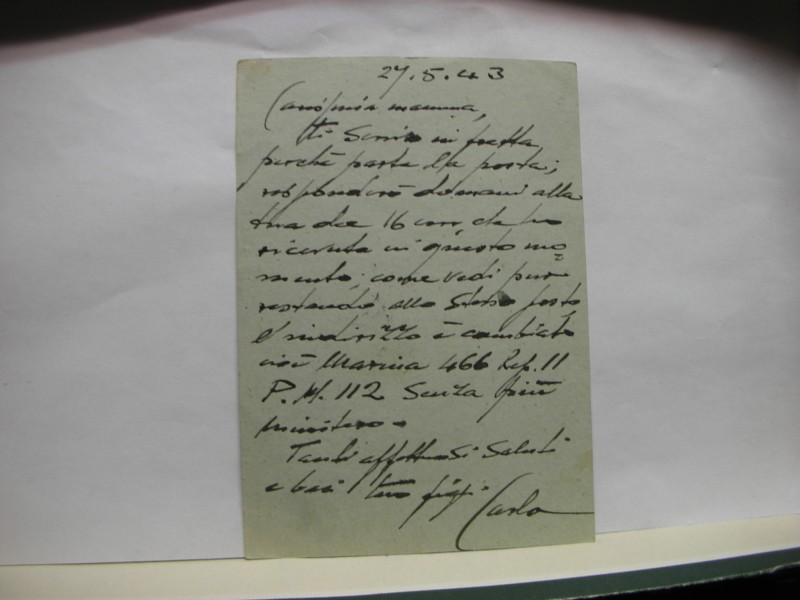 27.5.43
Carissima mamma,
ti scrivo in fretta
perché parte la posta;
risponderò domani alla
tua del 16 corr. che ho
ricevuta in questo mo=
mento; come vedi pur
restando allo stesso posto
l'indirizzo è cambiato
cioè Marina 466 Rep. 11
P.M. 112 senza più
ministero.
Tanti affettuosi saluti
e baci tuo
Carlo